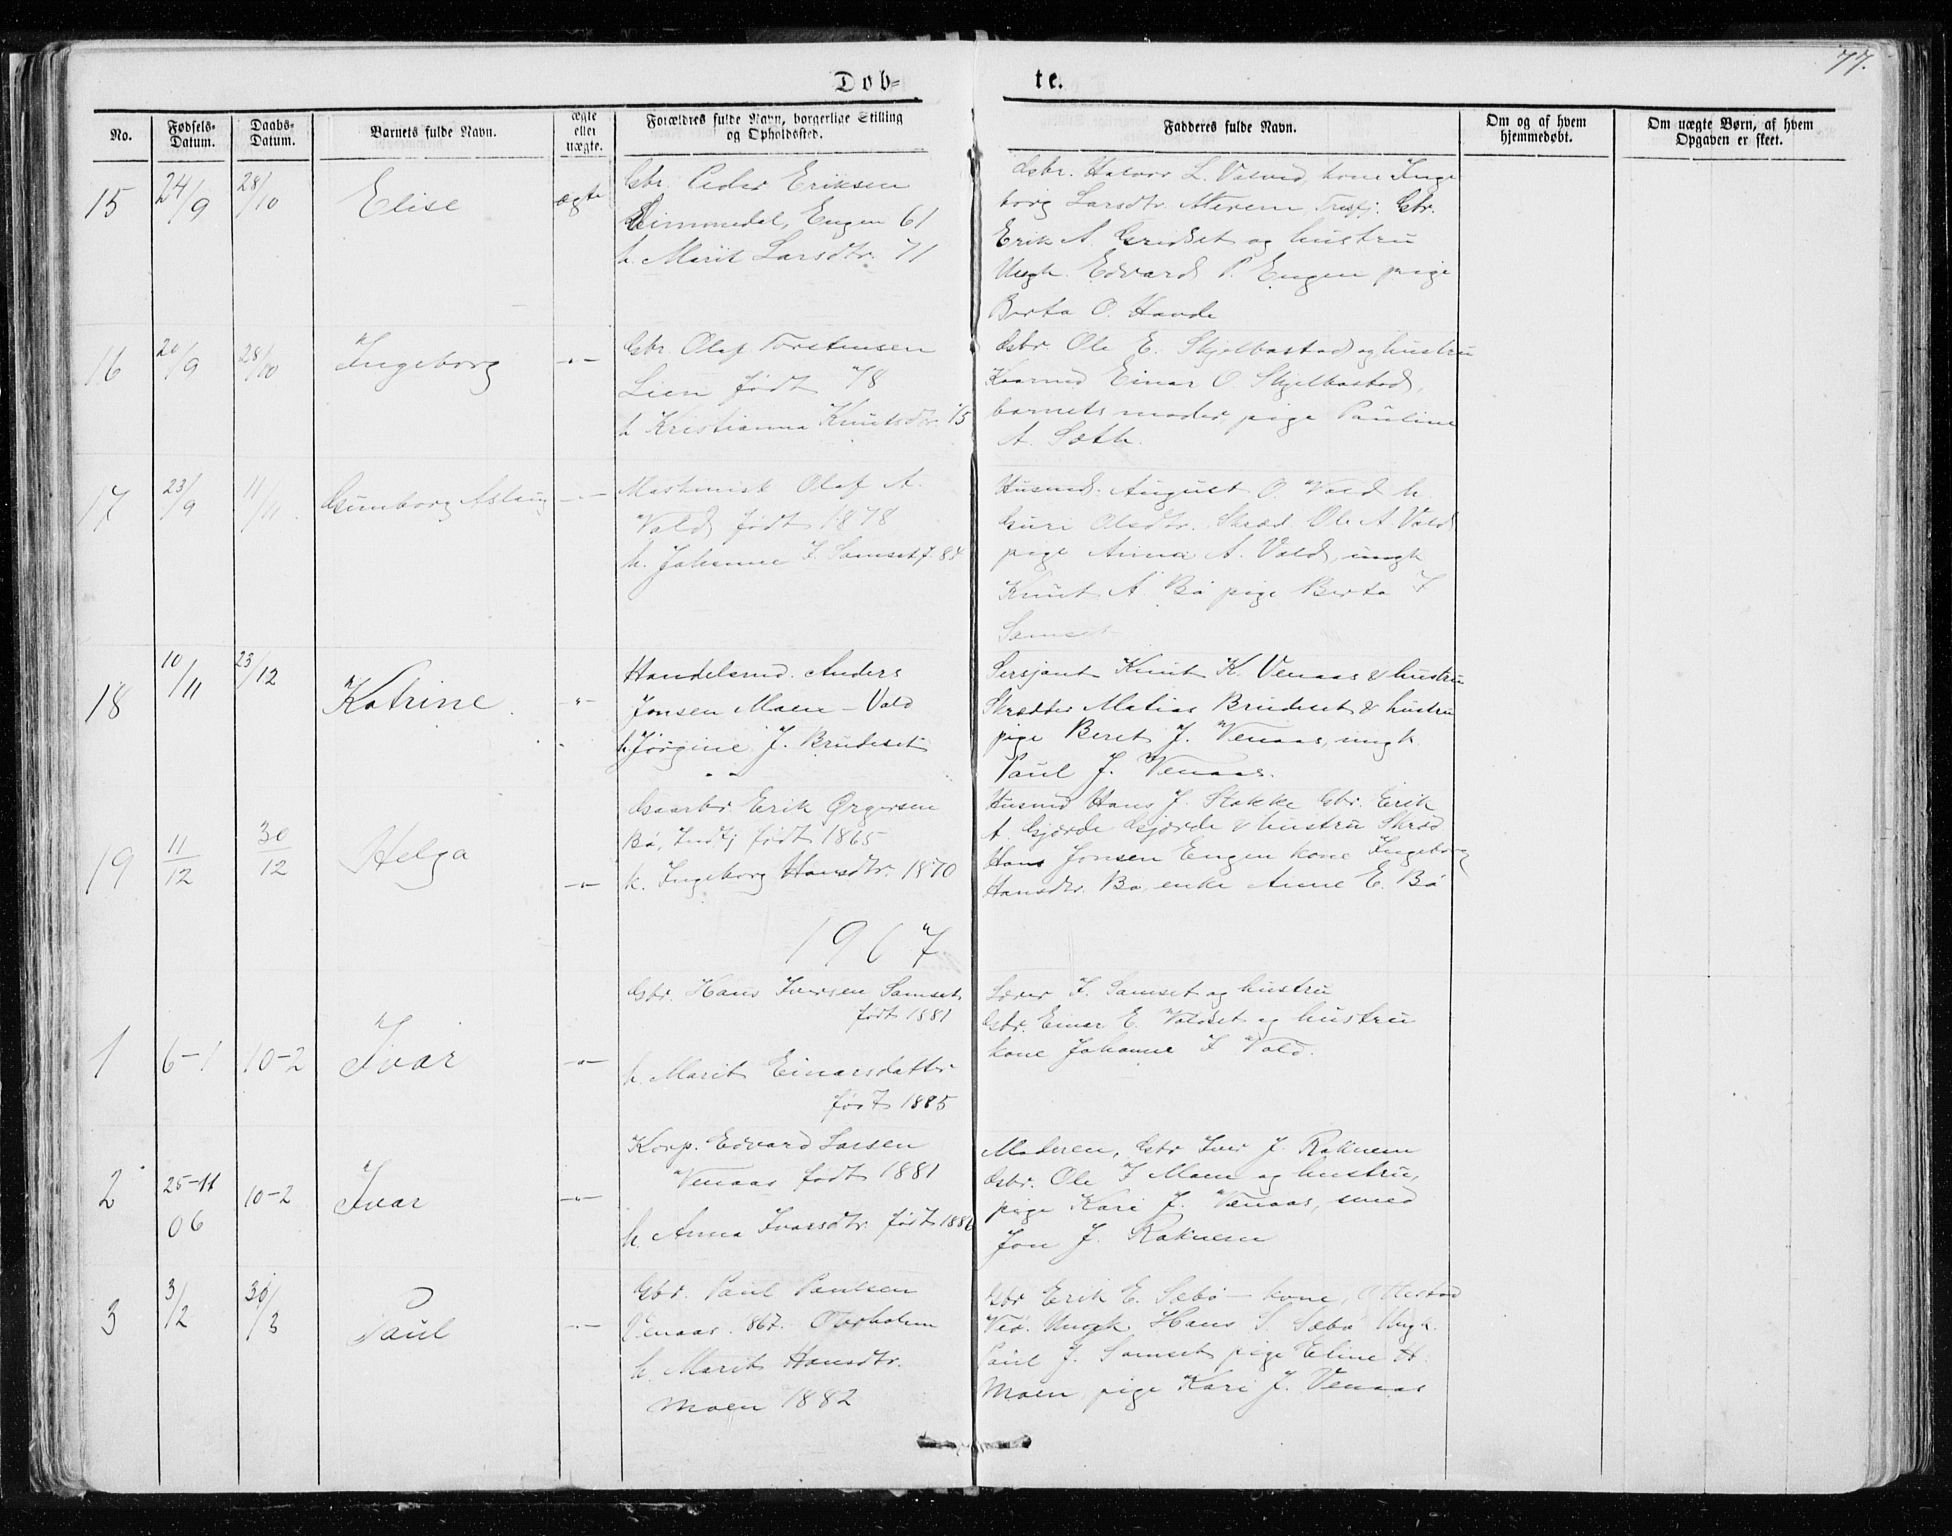 77.
Døb- te.
No. Fødsels-Datum. Daabs-Datum. Barnets fulde Navn. ægte eller uægte. Forældres fulde Navn, borgerlige Stilling og Opholdssted. Fadderes fulde Navn. Om og af hvem hjemmedøbt. Om uægte Børn, af hvem Opgaven er skeet.
15 24/9 28/10 Elise ægte
Gbr. Peder Eriksen
Engen 61
h. Marit Larsdtr. 71
Gbr. Halvor L. kone Inge
borg Larsdtr. Gbr.
Erik A. og hustru
Ungk. Edvard P. Engen pige
Berta O. Hande
16 20/9 28/10 Ingeborg -"-
Gbr. Olaf Torstensen
Lien født 78
h. Kristianna Knutsdtr. 75
Gbr. Ole E. Skjelbostad og hustru
Einar O. Skjelbostad,
barnets moder, pige Pauline
A. Sæth.
17 23/9 11/11 Gunborg Aslaug -"-
Maskinist Olaf A.
Vold født 1878
h. Johanne I. Samset f. 84
Husmd. August O. Vold h.
Guri Olsdtr. Skræd. Ole A. Vold
pige Anna A. Vold, ungk.
Knut A. Bö pige Berta I
Samset
18 10/11 23/12 Katrine -"-
Handelsmd. Anders
Jonsen Moen - Vold
h. Jörgine J. Brudeset
Sersjant Knut K. Venaas & hustru
Skrædder Matias Brudeset & hustru
pige Beret J. Venaas, ungk.
Paul J. Venaas.
19 11/12 30/12 Helga -"-
Gaarbr. Erik Ørgersen
Bö, Indfj. født 1865
k. Ingeborg Hansdtr. 1870
Husmd Hans J. Stokke Gbr. Erik
A. Gjørde Gjørde & hustru Skræd
Hans Jonsen Engen kone Ingeborg
Hansdtr. Bö, enke Anne E. Bö
1907
1 6-1 10-2 Ivar -"-
Gbr. Hans Iversen Samset
født 1881
h. Marit Einarsdatter
født 1885
Lærer I. Samset og hustru
Gbr. Einar E. Voldset og hustru
kone Johanne I Vold.
2 25-11 06 10-2 Ivar -"-
Korp. Edvard Larsen
Venaas født 1881
h. Anna Ivarsdtr. født
Moderen, Gbr Iver J. Raknem
Gbr. Ole I Moen og hustru,
pige Kari J. Venaas, smed
Jon J. Raknem
3 3/2 30/3 Paul -"-
Gbr. Paul Paulsen
Venaas. 867. Overholm
h. Marit Hansdtr.
Moen 1882
Gbr Erik E. Sæbö - kone,
Ungk. Hans S. Sæbö Ungk.
Paul J. Samset pige Eline H.
Moen, pige Kari J. Venaas